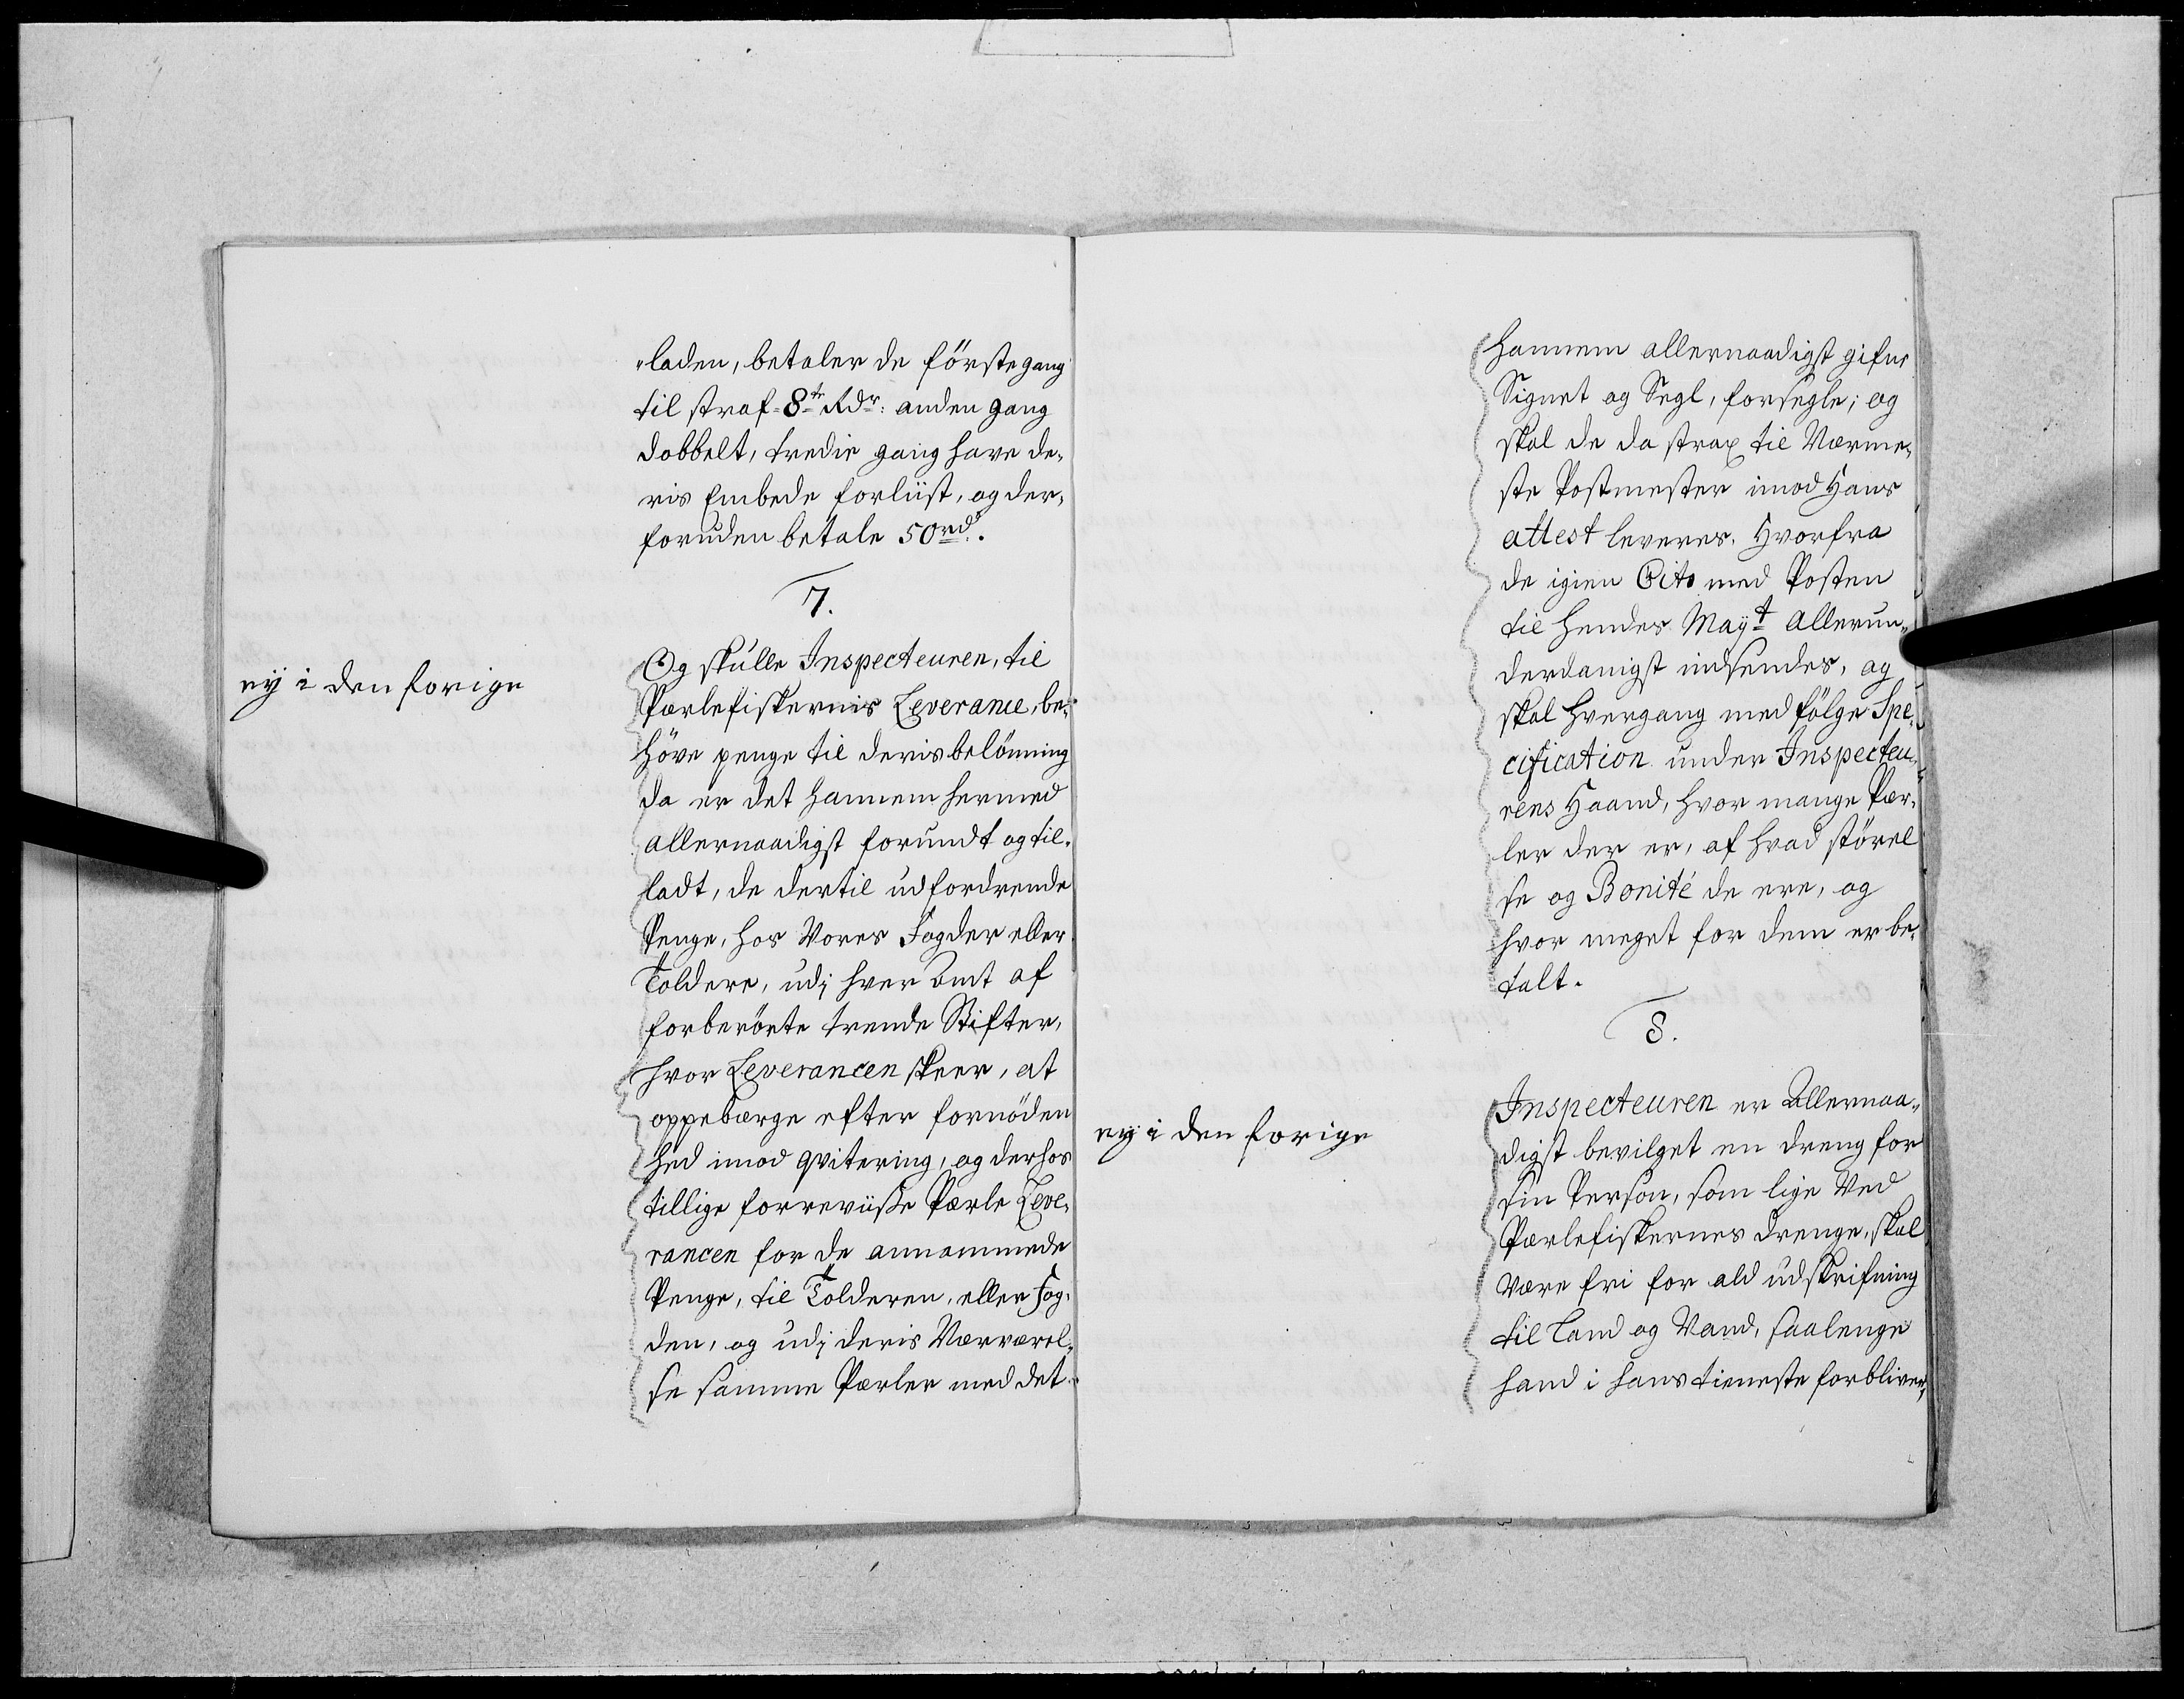 laden, betaler de förste gang
til straf 8te Rdr: anden gang
dobbelt, tredie gang have de,
ris Embede forliist, og der,
foruden betale 50 rd:.
7.
ey i den forige
Og skulle Inspecteuren, til
Pærlefiskernis Leverance, be,
höve penge til deris belönning
da er det hannem hermed
allernaadigst forundt og til,
ladt, de dertil udfordrende
Penge, hos Vores Fogder eller
Toldere, udi hver Amt af
forberörte trende Stifter,
hvor Leverancen skeer, at
oppebærge efter fornöden
hed imod qvitering, og derhos
tillige forreviiße Pærle Leve,
rancen for de annammede
Penge, til Tolderen, eller Fog,
den, og udi deris Nærværel,
se samme Pærler med det
hannem allernaadigst gifne
Signet og Segl, forsegle; og
skal de da strax til Nærme,
ste Postmester imod Hans
attest leveres. Hvorfra
de igien Cito med Posten
til Hendes Mayt Allerun,
derdanigst indsendes, og
skal hvergang med fölge Spe,
cification under Inspecteu,
rens Haand, hvor mange Pær,
ler der er, af hvad störel
se og Bonité de ere, og
hvor meget for dem er be,
talt.
8.
ey i den forige
Inspecteuren er Allernaa,
digst bevilget en dreng for
sin Person, som lige Ved
Pærlefiskernes drenge, skal
Være fri for ald udskrifning
til Land og Vand, saalenge
hand i hans tieneste forbliver,